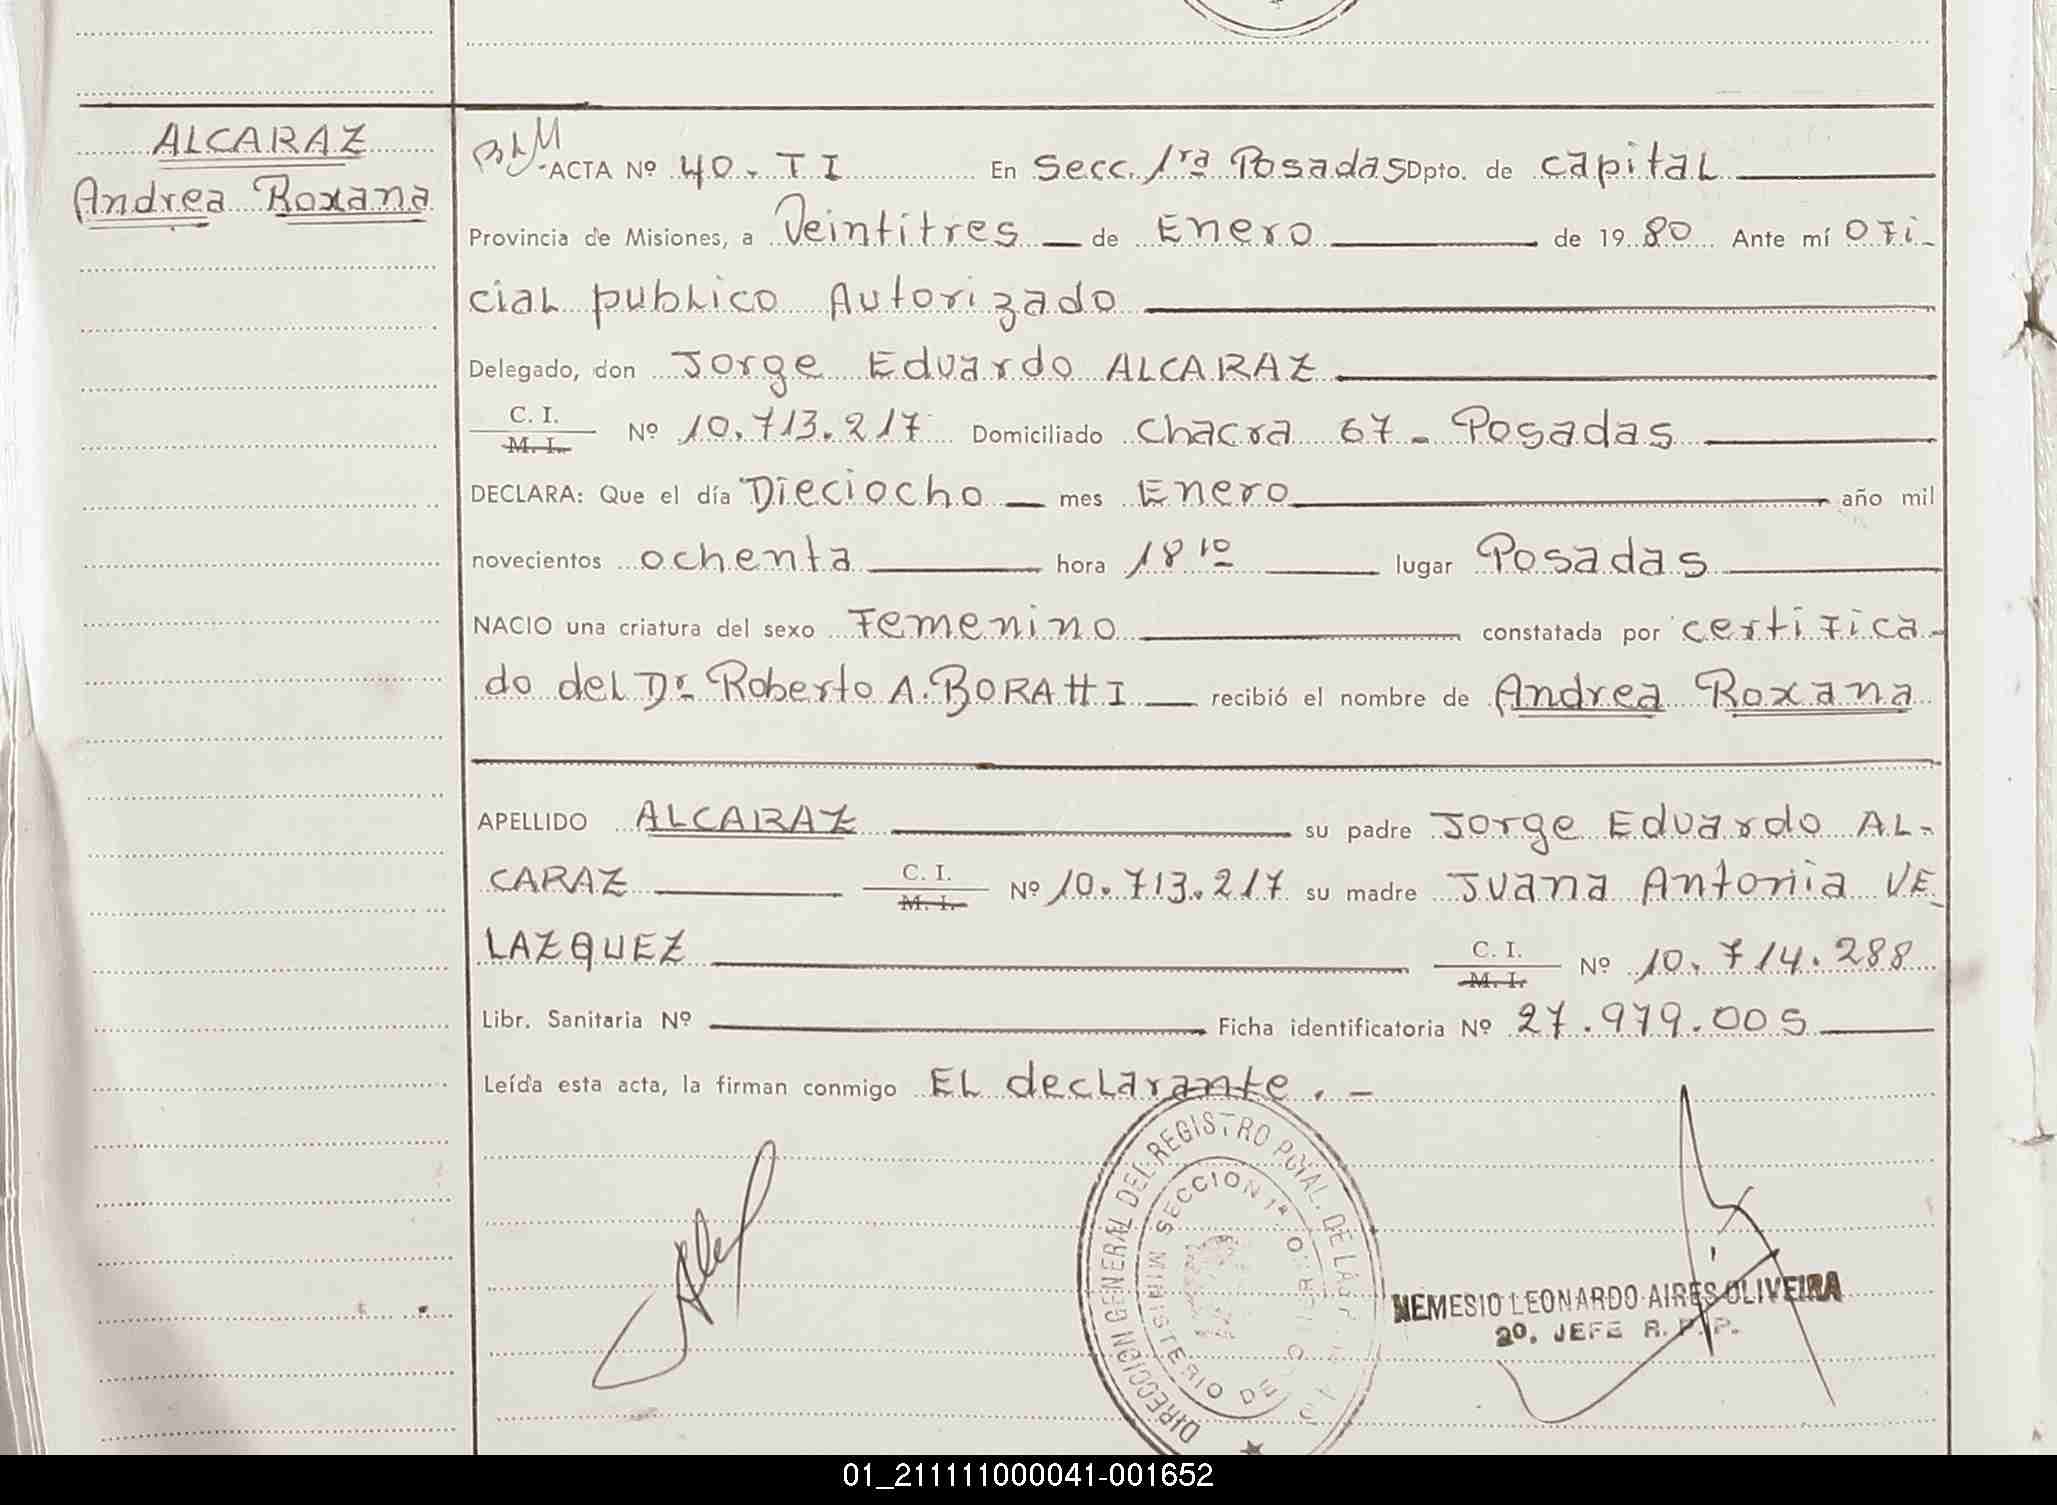 ALCARAZ
Andrea Roxana
ACTA Nº 40. TI En Secc. 1ra Posadas Dpto. de capital
Provincia de Misiones, a Veintitres de Enero de 1980 Ante mí Ofi-
cial publico Autorizado
Delegado, don Jorge Eduardo ALCARAZ
C. I.
M. I.
Nº 10.713.217 Domiciliado Chacra 67 - Posadas
DECLARA: Que el día Dieciocho mes Enero año mil
novecientos ochenta hora 18 10 lugar Posadas
NACIO una criatura del sexo Femenino constatada por certifica-
do del Dr. Roberto A. BORATTI recibió el nombre de Andrea Roxana
APELLIDO ALCARAZ su padre Jorge Eduardo AL-
CARAZ C. I. M. I. Nº 10.713.217 su madre Juana Antonia VE
LAZQUEZ C. I. M. I. Nº 10.714.288
Libr. Sanitaria Nº Ficha identificatoria Nº 27.979.005
Leída esta acta, la firman conmigo EL declarante.-
DIRECCION GENERAL DEL REGISTRO DE LAS
SECCION 1ª
MINISTERIO DE
NEMESIO LEONARDO AIRES OLIVEIRA
2º. JEFE R. P. P.
01_211111000041-001652